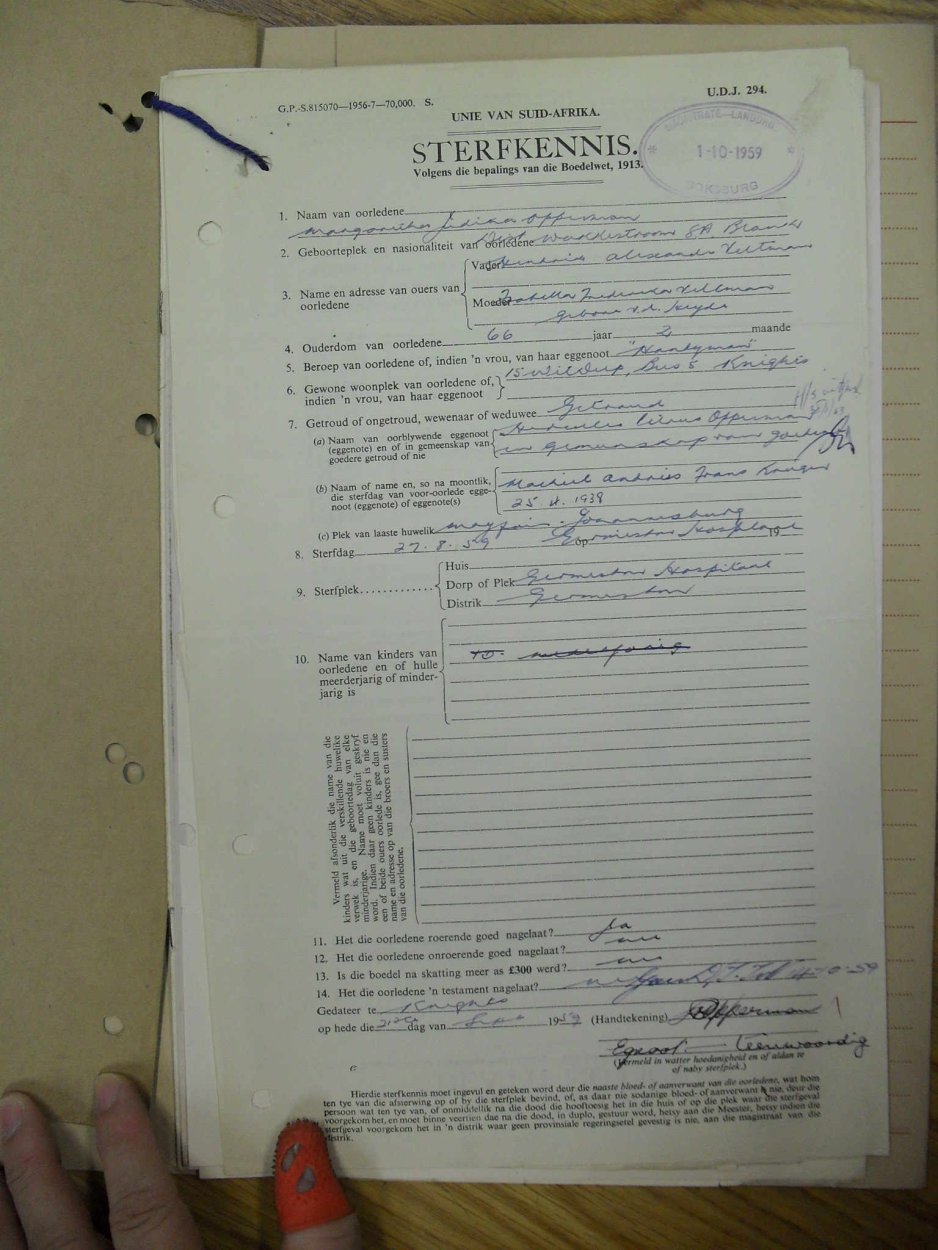 G.P.-S.815070—1956-7—70,000. S.
U.D.J. 294.
UNIE VAN SUID-AFRIKA.
STERFKENNIS.
Volgens die bepalings van die Boedelwet, 1913.
MAGISTRATE—LANDDROS
1-10-1959
BOKSBURG
1. Naam van oorledene
Opperman
2. Geboorteplek en nasionaliteit van oorledene Dist. Wakkerstroom SA Blank
3. Name en adresse van ouers van oorledene
Vader Hendrik Alexander Veltman
Moeder Isabella Frederika Veltman
gebore v.d. Heyde
4. Ouderdom van oorledene 66 jaar 2 maande
5. Beroep van oorledene of, indien 'n vrou, van haar eggenoot "Handyman"
6. Gewone woonplek van oorledene of, indien 'n vrou, van haar eggenoot
15 Knights
7. Getroud of ongetroud, wewenaar of weduwee Getroud
(a) Naam van oorblywende eggenoot (eggenote) en of in gemeenskap van goedere getroud of nie
Hercules Opperman
in gemeenskap van goedere
(b) Naam of name en, so na moontlik, die sterfdag van voor-oorlede eggenoot (eggenote) of eggenote(s)
Machiel Andries Frans Kruger
1938
(c) Plek van laaste huwelik Mayfair Johannesburg
8. Sterfdag 27.8.59 op Germiston Hospitaal 19
9. Sterfplek............
Huis
Dorp of Plek Germiston Hospitaal
Distrik Germiston
10. Name van kinders van oorledene en of hulle meerderjarig of minderjarig is
Vermeld afsonderlik die name van die kinders wat uit die verskillende huwelike verwek is, en die geboortedag van elke minderjarige. Name moet voluit geskryf word. Indien daar geen kinders is nie en een of beide ouers oorlede is, gee dan die name en adresse op van die broers en susters van die oorledene.
11. Het die oorledene roerende goed nagelaat? Ja
12. Het die oorledene onroerende goed nagelaat? nee
13. Is die boedel na skatting meer as £300 werd? nee
14. Het die oorledene 'n testament nagelaat?
Gedateer te Knights
op hede die 21ste dag van Sept 1959 (Handtekening) Opperman
Eggenoot Teenwoordig
(Vermeld in watter hoedanigheid en of aldan te of naby sterfplek.)
Hierdie sterfkennis moet ingevul en geteken word deur die naaste bloed- of aanverwant van die oorledene, wat hom
ten tye van die afsterwing op of by die sterfplek bevind, of, as daar nie sodanige bloed- of aanverwant is nie, deur die
persoon wat ten tye van, of onmiddellik na die dood die hooftoesig het in die huis of op die plek waar die sterfgeval
voorgekom het, en moet binne veertien dae na die dood, in duplo, gestuur word, hetsy aan die Meester, hetsy indien die
sterfgeval voorgekom het in 'n distrik waar geen provinsiale regeringsetel gevestig is nie, aan die magistraat van die
distrik.